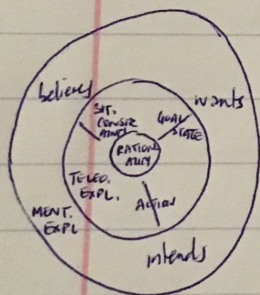 believes
wants
SIT.
CONSTR
AINT
GOAL
STATE
RATION
ALITY
TELEO.
EXPL.
ACTION
MENT.
EXPL
intends